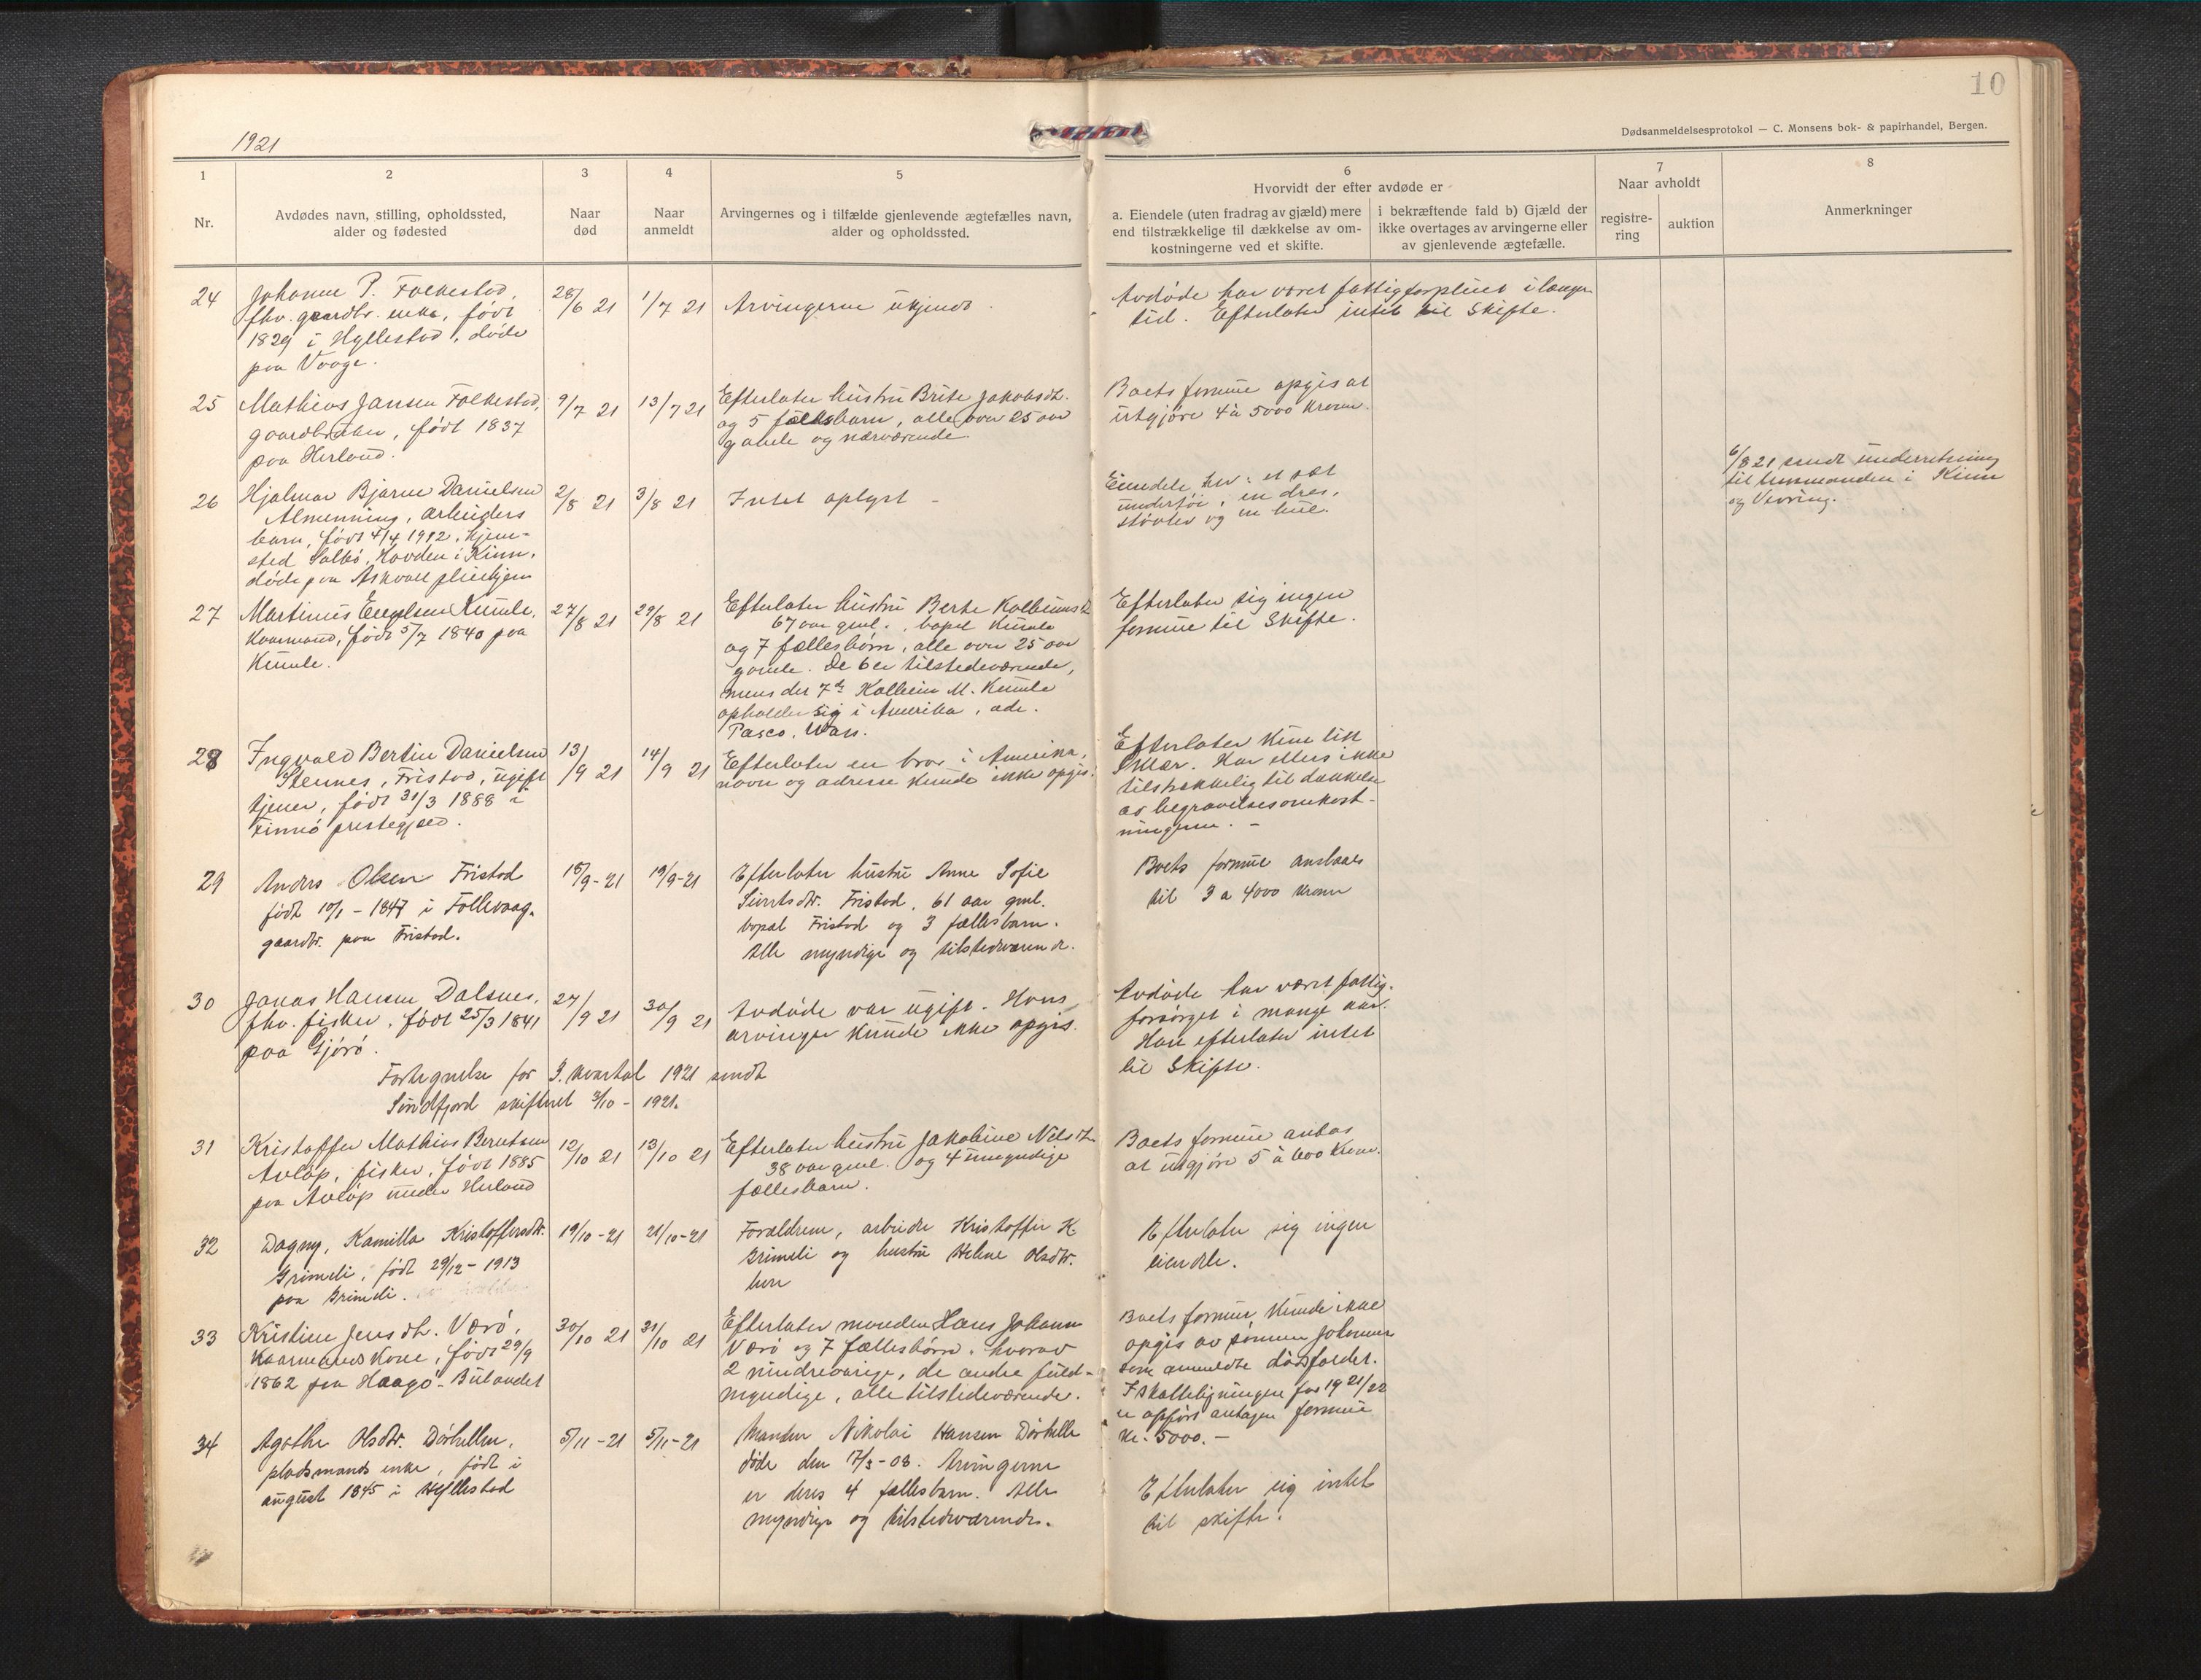 10
Dødsanmeldelsesprotokol — C. Monsens bok- & papirhandel, Bergen.
1921
1
2
3
4
5
6
7
8
Nr.
Avdødes navn, stilling, opholdssted,
alder og fødested
Naar
død
Naar
anmeldt
Arvingernes og i tilfælde gjenlevende ægtefælles navn,
alder og opholdssted.
Hvorvidt der efter avdøde er
a. Eiendele (uten fradrag av gjæld) mere
end tilstrækkelige til dækkelse av om-
kostningerne ved et skifte.
i bekræftende fald b) Gjæld der
ikke overtages av arvingerne eller
av gjenlevende ægtefælle.
Naar avholdt
registre-
ring
auktion
Anmerkninger
24
Johanne P. Folkestad,
fhv. gaardbr. enke, født
1829 i Hyllestad, døde
paa Vaage.
28/6 21
1/7 21
Arvingerne ukjendt.
Avdøde har været fattigforpleiet i længer
tid. Efterlater intet til Skifte.
25
Mathias Jansen Folkestad,
gaardbruker, født 1837
paa Herland.
9/7 21
13/7 21
Efterlater hustru Brite Jakobsdt.
og 5 fællesbarn, alle over 25 aar
gamle og nærværende.
Boets formue opgis at
utgjøre 4 à 5000 kroner.
26
Hjalmar Bjarne Danielsen
Almenning, arbeiders
barn, født 4/4 1912, hjem-
sted Salbø, Hovden i Kinn,
døde paa Askvoll pleiehjem
2/8 21
3/8 21
Intet oplyst -
Eiendele her: et sæt
undertøi, en dres,
støvler og en hue.
6/8 21 sendt underretning
til lensmanden i Kinn
og Vevring.
27
Martinus Engelsen Kumle,
Kaarmand, født 5/7 1840 paa
Kumle.
27/8 21
29/8 21
Efterlater hustru Berte Kolbeinsdt
67 aar gml., bopæl Kumle
og 7 fællesbørn, alle over 25 aar
gamle. De 6 er tilstedeværende,
mens den 7de Kolbein M. Kumle
opholder sig i Amerika, adr.
Pasco, Wash.
Efterlater sig ingen
formue til Skifte.
28
Ingvald Bertin Danielsen
Stennes, Fristad, ugift
tjener, født 31/3 1888 i
Finnø prestegjæld.
13/9 21
14/9 21
Efterlater en bror i Amerika,
navn og adresse kunde ikke opgis.
Efterlater kun litt
klær. Har ellers ikke
tilstrækkelig til dækkelse
av begravelsesomkost-
ningerne. -
29
Anders Olsen Fristad
født 10/1 - 1847 i Follevaag.
gaardbr. paa Fristad.
18/9-21
19/9-21
Efterlater hustru Anne Sofie
Sivertsdtr. Fristad, 61 aar gml.
bopæl Fristad og 3 fællesbarn.
Alle myndige og tilstedværende.
Boets formue anslaaes
til 3 a 4000 kroner
30
Jonas Hansen Dalsnes,
fhv. fisker, født 25/3 1841
paa Gjørø.
27/9 21
30/9 21
Avdøde var ugift. Hans
arvinger kunde ikke opgis.
Avdøde har været fattig-
forsørget i mange aar.
Han efterlater intet
til Skifte.
Fortegnelse for 3. kvartal 1921 sendt
Søndfjord skifteret 3/10 - 1921.
31
Kristoffer Mathias Berntsen
Avløp, fisker, født 1885
paa Avløp under Herland
12/10 21
13/10 21
Efterlater hustru Jakobine Nilsdt
38 aar gml. og 4 umyndige
fællesbarn.
Boets formue antas
at utgjøre 5 à 600 Kroner.
32
Dagny, Kamilla Kristoffersdtr.
Grimeli, født 29/12 - 1913
paa Grimeli.
19/10-21
21/10-21
Forældrene, arbeider Kristoffer H.
Grimeli og hustru Helene Olsdtr.
Efterlater sig ingen
eiendele.
33
Kristine Jensdt. Værø,
Kaarmands kone, født 29/9
1862 paa Haagø - Bulandet
30/10 21
31/10 21
Efterlater manden Hans Johann
Værø og 7 fællesbørn, hvorav
2 mindreaarige, de andre fuld-
myndige, alle tilstedeværende.
Boets formue kunde ikke
opgis av sønnen Johannes
som anmeldte dødsfaldet.
I skatteligningen for 1921/22
er opført antagen formue
kr. 5000. -
34
Agathe Olsdtr. Dørhellen,
pladsmands enke, født i
august 1845 i Hyllestad
5/11-21
5/11-21
Manden Nikolai Hansen Dørhelle
døde den 17/3-03. Arvingerne
er deres 4 fællesbarn. Alle
myndige og tilstedværende.
Efterlater sig intet
til skifte.